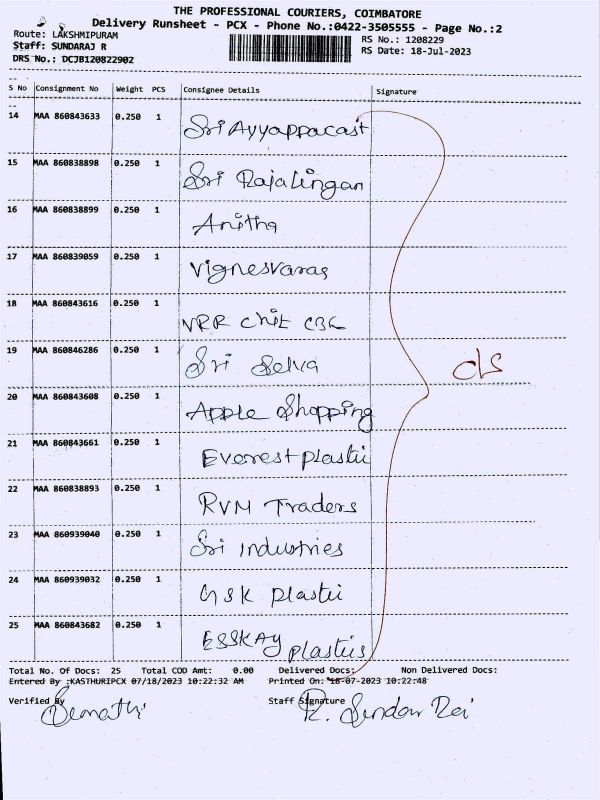 THE PROFESSIONAL COURIERS, COIMBATORE
Delivery Runsheet - PCX - Phone No.:0422-3505555 - Page No.:2
Route: LAKSHMIPURAM
RS No.: 1208229
Staff: SUNDARAJ R
RS Date: 18-Jul-2023
DRS No.: DCJB120822902
S No Consignment No Weight PCS Consignee Details Signature
14 MAA 860843633 0.250 1 Sri Ayyappacast
15 MAA 860838898 0.250 1 Sri Rajalingan
16 MAA 860838899 0.250 1 Anitha
17 MAA 860839059 0.250 1 Vignesvaras
18 MAA 860843616 0.250 1 VRR Chit CBE
19 MAA 860846286 0.250 1 Sri Selva
c/s
20 MAA 860843608 0.250 1 Apple Shopping
21 MAA 860843661 0.250 1 Everest plastic
22 MAA 860838893 0.250 1 RVM Traders
23 MAA 860939040 0.250 1 Sri industries
24 MAA 860939032 0.250 1 GSK plastic
25 MAA 860843682 0.250 1 ESSKAY plastics
Total No. Of Docs: 25 Total COD Amt: 0.00 Delivered Docs: Non Delivered Docs:
Entered By :KASTHURIPCX 07/18/2023 10:22:32 AM Printed On: 18-07-2023 10:22:48
Verified By Staff Signature
R. Sundar Raj